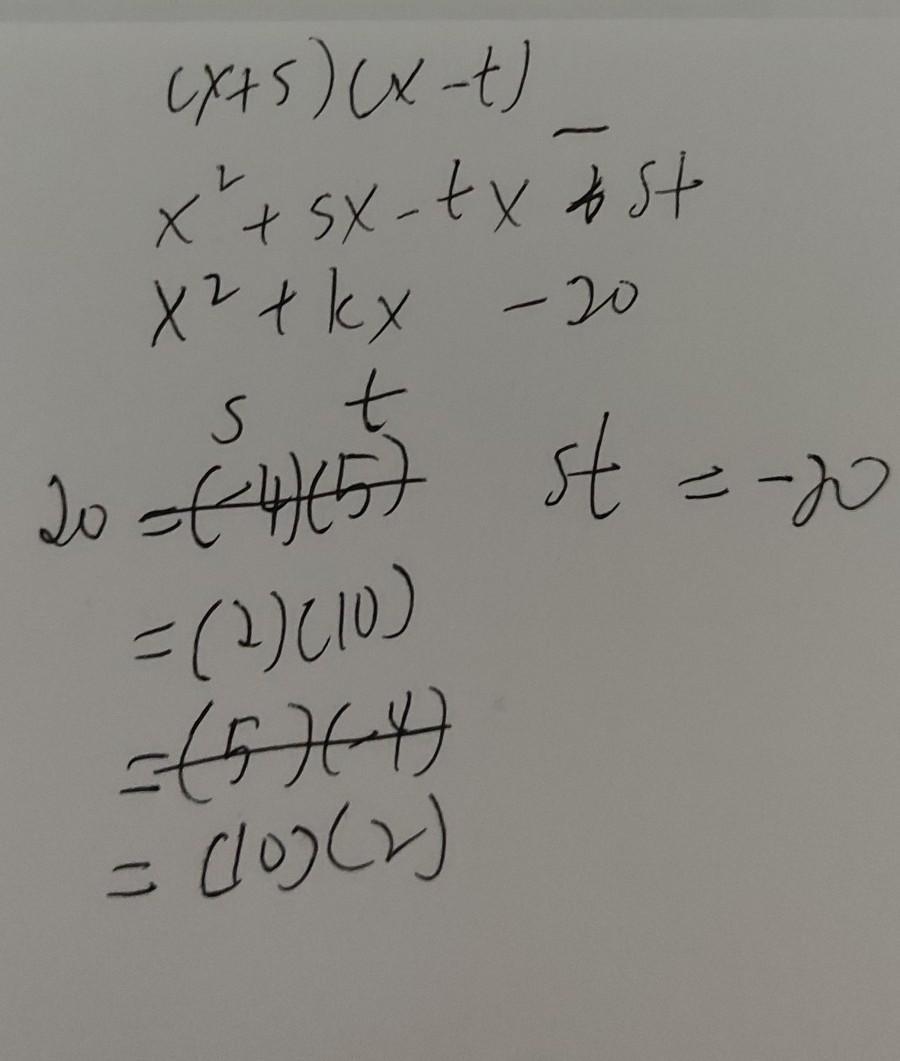 (x+s)(x-t)
x²+sx-tx - st
x²+kx -20
s t
20 =(-4)(5) st = -20
=(2)(10)
=(5)(-4)
= (10)(2)